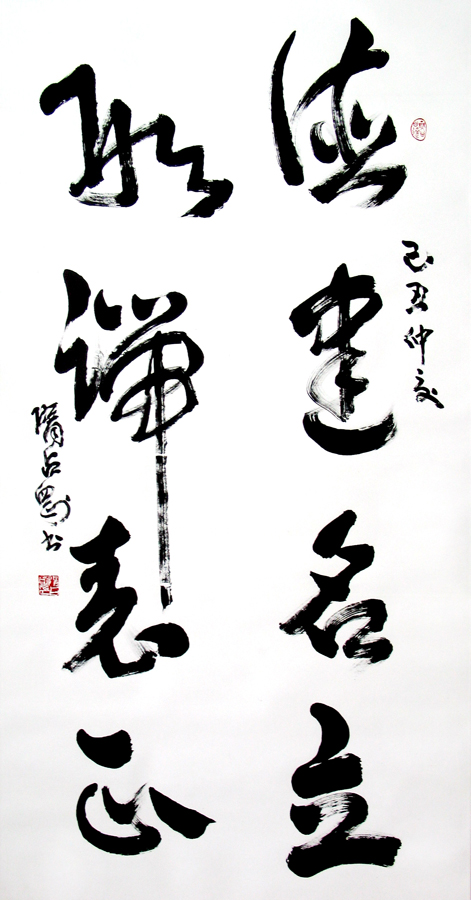 己丑仲夏
德建名立
形端表正
占 书